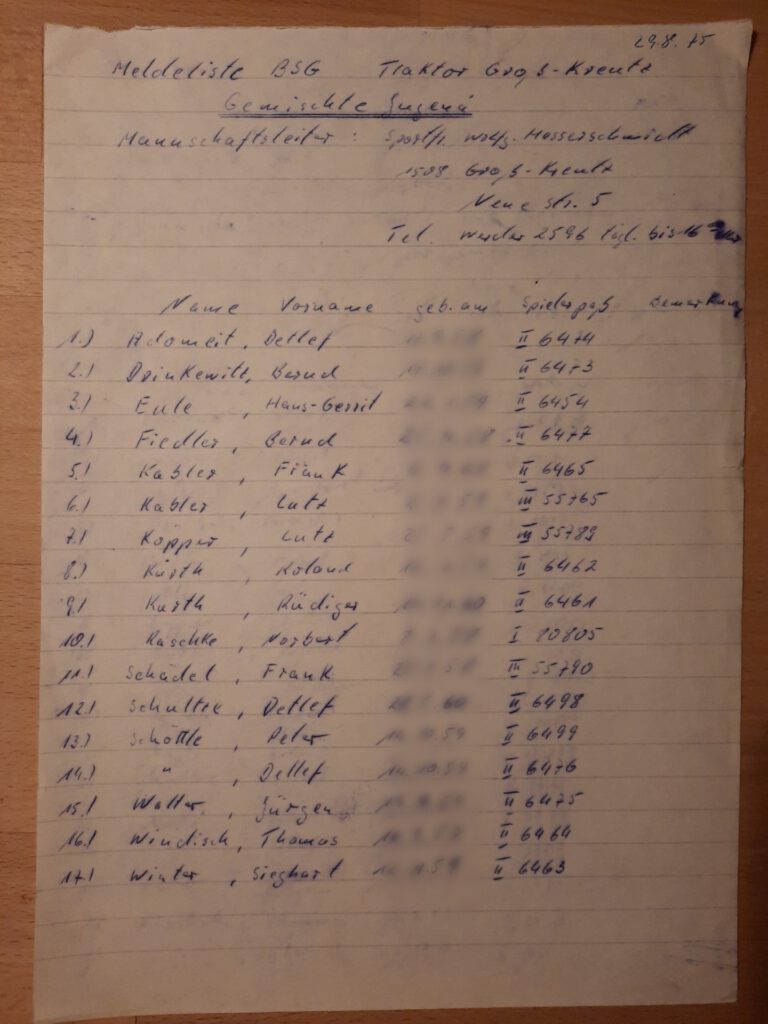 29.8.75
Meldeliste BSG Traktor Groß-Kreutz
Gemischte Jugend
Mannschaftsleiter: Sportfr. Wolfg. Messerschmidt
1508 Groß-Kreutz
Neue Str. 5
Tel. Werder 2596 tägl. bis 16 Uhr
Name Vorname geb. am Spielerpaß Bemerkung
1.) Adomeit, Detlef II 6474
2.) Drinkewitz, Bernd II 6473
3.) Eule, Hans-Gerrit II 6454
4.) Fiedler, Bernd II 6477
5.) Kabler, Frank II 6465
6.) Kabler, Lutz III 55765
7.) Köpper, Lutz III 55789
8.) Kurth, Roland II 6462
9.) Kurth, Rüdiger II 6461
10.) Raschke, Norbert I 80805
11.) Schadel, Frank III 55790
12.) Schultze, Detlef II 6498
13.) Schöttle, Peter II 6499
14.) " , Detlef II 6476
15.) Walter, Jürgen II 6475
16.) Windisch, Thomas II 6464
17.) Winter, Sieghart II 6463